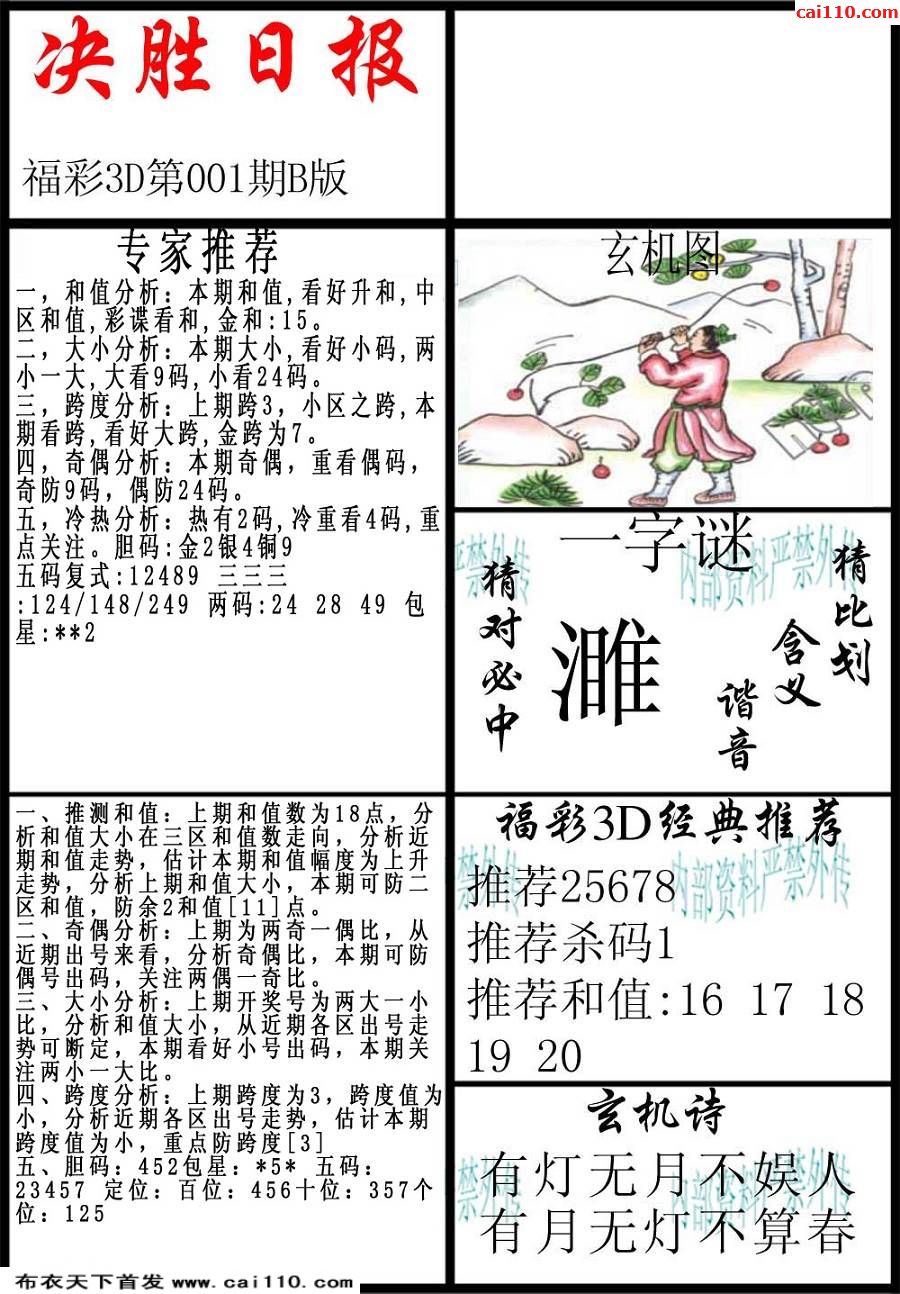 cai110.com
决胜日报
福彩3D第001期B版
专家推荐
一，和值分析：本期和值,看好升和,中
区和值,彩谍看和,金和:15。
二，大小分析：本期大小,看好小码,两
小一大,大看9码,小看24码。
三，跨度分析：上期跨3，小区之跨,本
期看跨,看好大跨,金跨为7。
四，奇偶分析：本期奇偶，重看偶码，
奇防9码，偶防24码。
五，冷热分析：热有2码,冷重看4码,重
点关注。胆码:金2银4铜9
五码复式:12489 三三三
:124/148/249 两码:24 28 49 包
星:**2
玄机图
一字谜
猜对必中
濉
猜比划
含义
谐音
内部资料严禁外传
一、推测和值：上期和值数为18点，分
析和值大小在三区和值数走向，分析近
期和值走势，估计本期和值幅度为上升
走势，分析上期和值大小，本期可防二
区和值，防余2和值[11]点。
二、奇偶分析：上期为两奇一偶比，从
近期出号来看，分析奇偶比，本期可防
偶号出码，关注两偶一奇比。
三、大小分析：上期开奖号为两大一小
比，分析和值大小，从近期各区出号走
势可断定，本期看好小号出码，本期关
注两小一大比。
四、跨度分析：上期跨度为3，跨度值为
小，分析近期各区出号走势，估计本期
跨度值为小，重点防跨度[3]
五、胆码：452包星：*5* 五码：
23457 定位：百位：456十位：357个
位：125
福彩3D经典推荐
推荐25678
推荐杀码1
推荐和值:16 17 18
19 20
内部资料严禁外传
玄机诗
有灯无月不娱人
有月无灯不算春
布衣天下首发 www.cai110.com